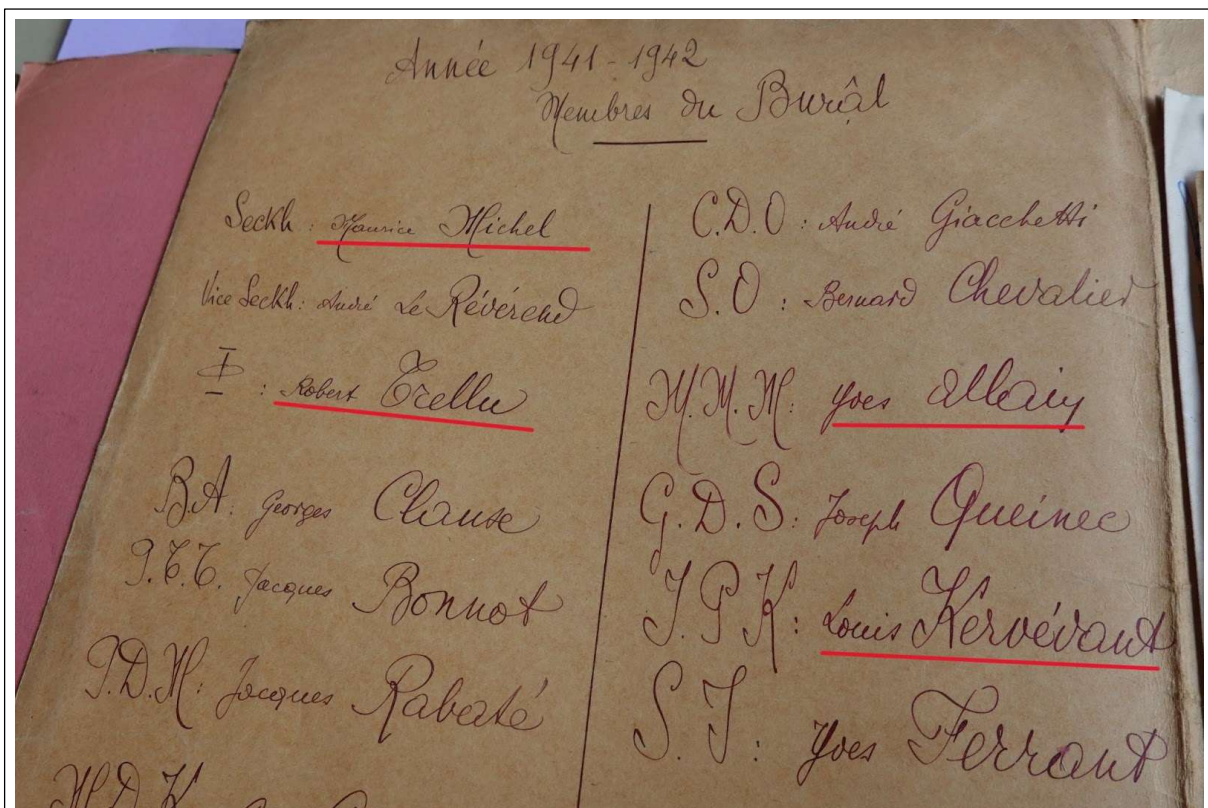 Année 1941-1942
Membres du Burâl
Seckh : Maurice Michel
Vice Seckh : André Le Révérend
I : Robert Trellu
B.A. Georges Clause
P.T.T. Jacques Bonnot
P.D.M : Jacques Rabaté
M.D.K
C.D.O : André Giacchetti
S.O : Bernard Chevalier
M.M.M : Yves Allain
G.D.S : Joseph Queinec
J.P.K : Louis Kervévant
S.J : Yves Ferrant